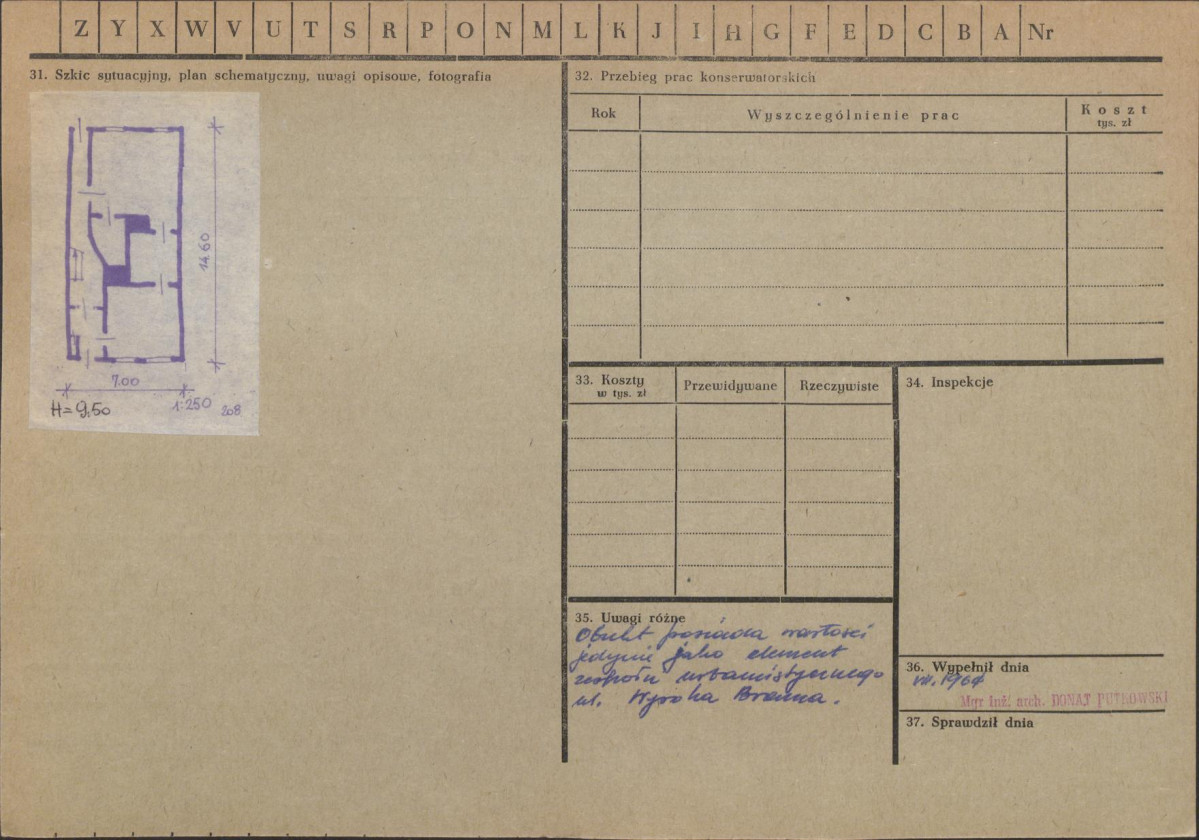 Z Y X W V U T S R P O N M L K J I H G F E D C B A Nr
31. Szkic sytuacyjny, plan schematyczny, uwagi opisowe, fotografia
14.60
7.00
H=9,50
1:250
208
32. Przebieg prac konserwatorskich
Rok
Wyszczególnienie prac
Koszt
tys. zł
33. Koszty
w tys. zł
Przewidywane
Rzeczywiste
34. Inspekcje
35. Uwagi różne
Obiekt posiada wartości
jedynie jako element
zespołu urbanistycznego
ul. Wysoka Brama.
36. Wypełnił dnia
VII. 1964
Mgr Inż. arch. DONAT PUTKOWSKI
37. Sprawdził dnia